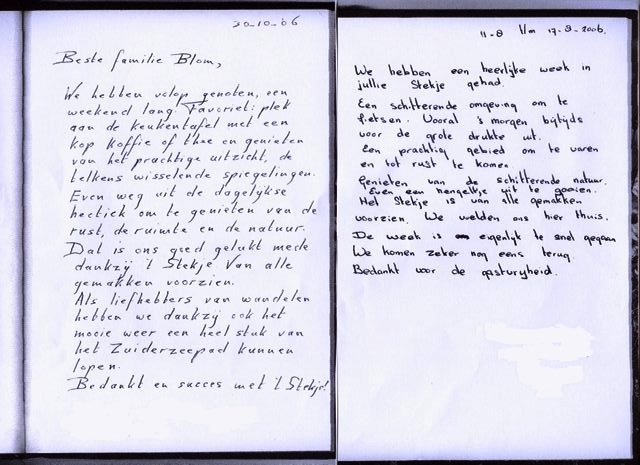 30-10-'06
Beste familie Blom,
We hebben volop genoten, een
weekend lang. Favoriet: plek
aan de keukentafel met een
kop koffie of thee en genieten
van het prachtige uitzicht, de
telkens wisselende spiegelingen.
Even weg uit de dagelijkse
hectiek om te genieten van de
rust, de ruimte en de natuur.
Dat is ons goed gelukt mede
dankzij 't Stekje van alle
gemakken voorzien.
Als liefhebbers van wandelen
hebben we dankzij ook het
mooie weer een heel stuk van
het Zuiderzeepad kunnen
lopen.
Bedankt en succes met 't Stekje!
11-8 t/m 17-8-2006.
We hebben een heerlijke week in
jullie Stekje gehad.
Een schitterende omgeving om te
fietsen. Vooral 's morgen bijtijds
voor de grote drukte uit.
Een prachtig gebied om te varen
en tot rust te komen.
Genieten van de schitterende natuur.
Even een hengeltje uit te gooien.
Het Stekje is van alle gemakken
voorzien. We voelden ons hier thuis.
De week is eigenlijk te snel gegaan
We komen zeker nog eens terug.
Bedankt voor de gastvrijheid.